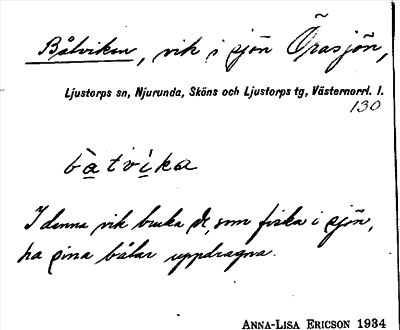 Båtviken, vik i sjön Örasjön,
Ljustorps sn, Njurunda, Sköns och Ljustorps tg, Västernorrl. l.
130
bàtvìka
I denna vik bruka de, som fiska i sjön,
ha sina båtar uppdragna.
ANNA-LISA ERICSON 1934